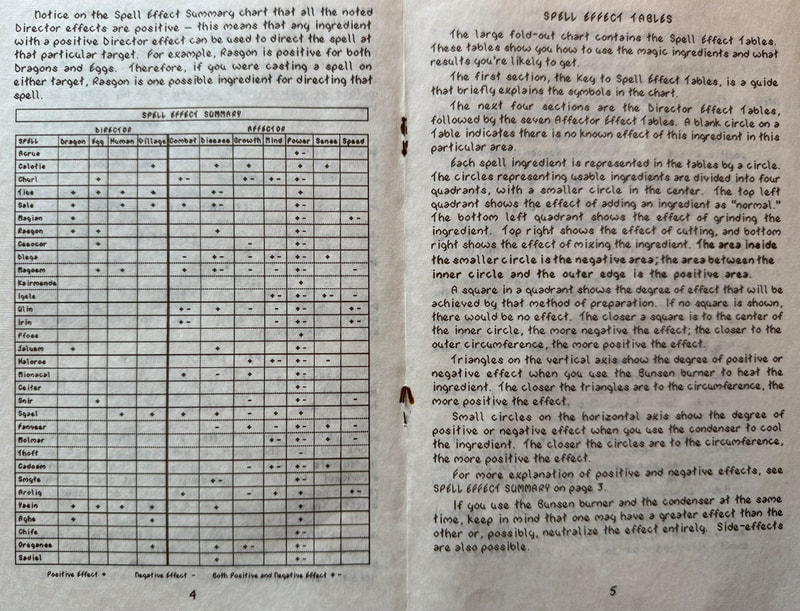 Notice on the Spell Effect Summary chart that all the noted
Director effects are positive — this means that any ingredient
with a positive Director effect can be used to direct the spell at
that particular target. For example, Rasgon is positive for both
Dragons and Eggs. Therefore, if you were casting a spell on
either target, Rasgon is one possible ingredient for directing that
spell.
SPELL EFFECT SUMMARY
DIRECTOR AFFECTOR
SPELL Dragon Egg Human Village Combat Disease Growth Mind Power Sense Speed
Acrue + -
Calotie + + + + +
Charl + + - + - + - + -
Tige + + + + + - +
Sale + + + + + - + -
Magian + + - + -
Rasgon + + + + -
Cesocor + - + -
Diega - + - - + - + - +
Rayoem + + + - + - + - -
Kairmende +
Igele + - + - + - -
Qlin + - + - - + - + -
Irin + - - - + - + -
Ffoes +
Jaluem + + + -
Haloroe + + - + - -
Mionacal + - + + -
Ceiter + -
Snir + - + - -
Sgael + + + + - + +
Fanveer - + - + - - -
Molmar + - + - - -
Thoft -
Cadosm - + - + - +
Smigte + - + -
Arolig + - + + + -
Ysein + + + + + + -
Aghe + + + -
Chife + -
Oreganee + + + - + -
Sadiel + + -
Positive Effect + Negative Effect - Both Positive and Negative Effect + -
4
SPELL EFFECT TABLES
The large fold-out chart contains the Spell Effect Tables.
These tables show you how to use the magic ingredients and what
results you're likely to get.
The first section, the Key to Spell Effect Tables, is a guide
that briefly explains the symbols in the chart.
The next four sections are the Director Effect Tables,
followed by the seven Affector Effect Tables. A blank circle on a
Table indicates there is no known effect of this ingredient in this
particular area.
Each spell ingredient is represented in the tables by a circle.
The circles representing usable ingredients are divided into four
quadrants, with a smaller circle in the center. The top left
quadrant shows the effect of adding an ingredient as "normal."
The bottom left quadrant shows the effect of grinding the
ingredient. Top right shows the effect of cutting, and bottom
right shows the effect of mixing the ingredient. The area inside
the smaller circle is the negative area; the area between the
inner circle and the outer edge is the positive area.
A square in a quadrant shows the degree of effect that will be
achieved by that method of preparation. If no square is shown,
there would be no effect. The closer a square is to the center of
the inner circle, the more negative the effect; the closer to the
outer circumference, the more positive the effect.
Triangles on the vertical axis show the degree of positive or
negative effect when you use the Bunsen burner to heat the
ingredient. The closer the triangles are to the circumference, the
more positive the effect.
Small circles on the horizontal axis show the degree of
positive or negative effect when you use the condenser to cool
the ingredient. The closer the circles are to the circumference,
the more positive the effect.
For more explanation of positive and negative effects, see
SPELL EFFECT SUMMARY on page 3.
If you use the Bunsen burner and the condenser at the same
time, keep in mind that one may have a greater effect than the
other or, possibly, neutralize the effect entirely. Side-effects
are also possible.
5